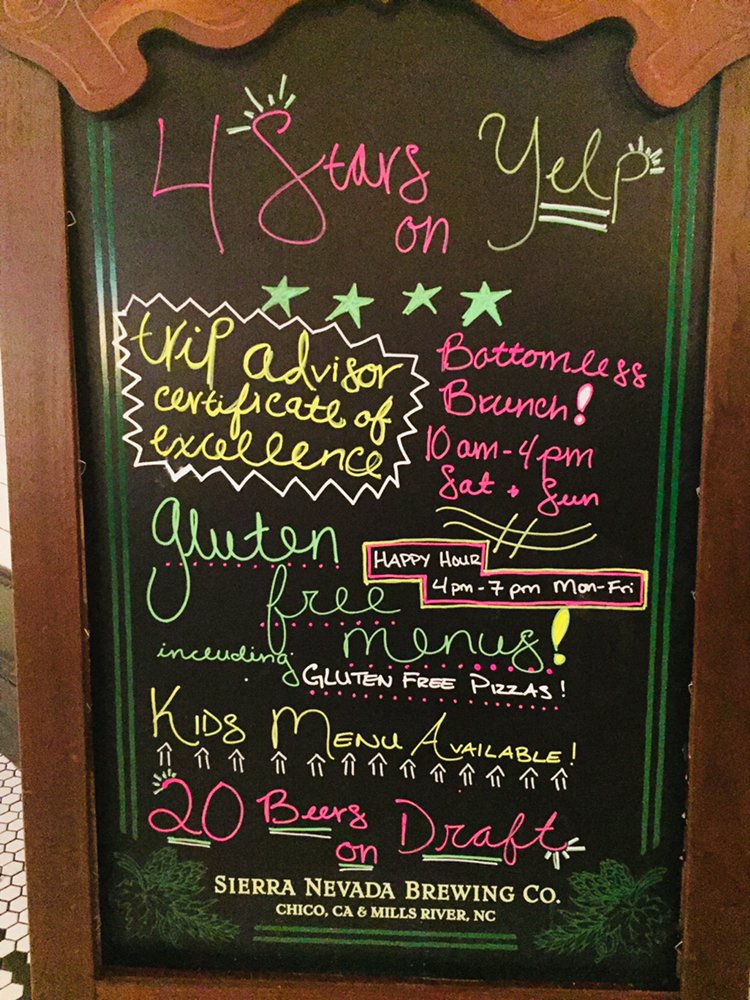 4 Stars
on Yelp
trip advisor
certificate of
excellence
Bottomless
Brunch!
10 am - 4 pm
Sat + Sun
HAPPY HOUR
4 pm - 7 pm Mon-Fri
gluten
free
menus!
including
GLUTEN FREE PIZZAS!
KIDS MENU AVAILABLE!
20 Beers
on Draft
SIERRA NEVADA BREWING CO.
CHICO, CA & MILLS RIVER, NC